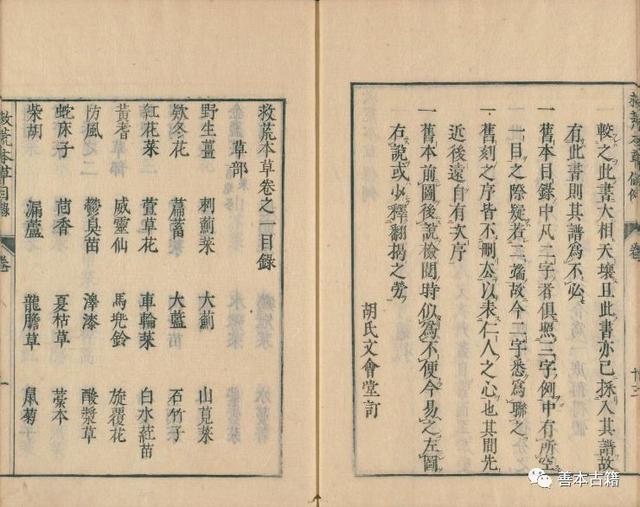 較之此書大相天壤且此書亦已採入其譜故
有此書則其譜爲不必
一 舊本目錄中凡二字者俱照三字例中有所空
一目之際疑若二端故今二字悉爲聯之
一 舊刻之序皆不刪去以表仁人之心也其間先
近後遠自有次序
一 舊本前圖後說檢閱時似爲不便今易之左圖
右說或少釋翻揭之勞
胡氏文會堂訂
救荒本草卷之一目錄
草部
野生薑 刺薊菜 大薊 山莧菜
欵冬花 萹蓄 大藍苗 石竹子
紅花菜 萱草花 車輪菜 白水葒苗
黃耆 威靈仙 馬兠鈴 旋覆花
防風 鬱臭苗 澤漆 酸漿草
蛇床子 茴香 夏枯草 藁本
柴胡 漏蘆 龍膽草 鼠菊
救荒本草目錄 卷 一
善本古籍